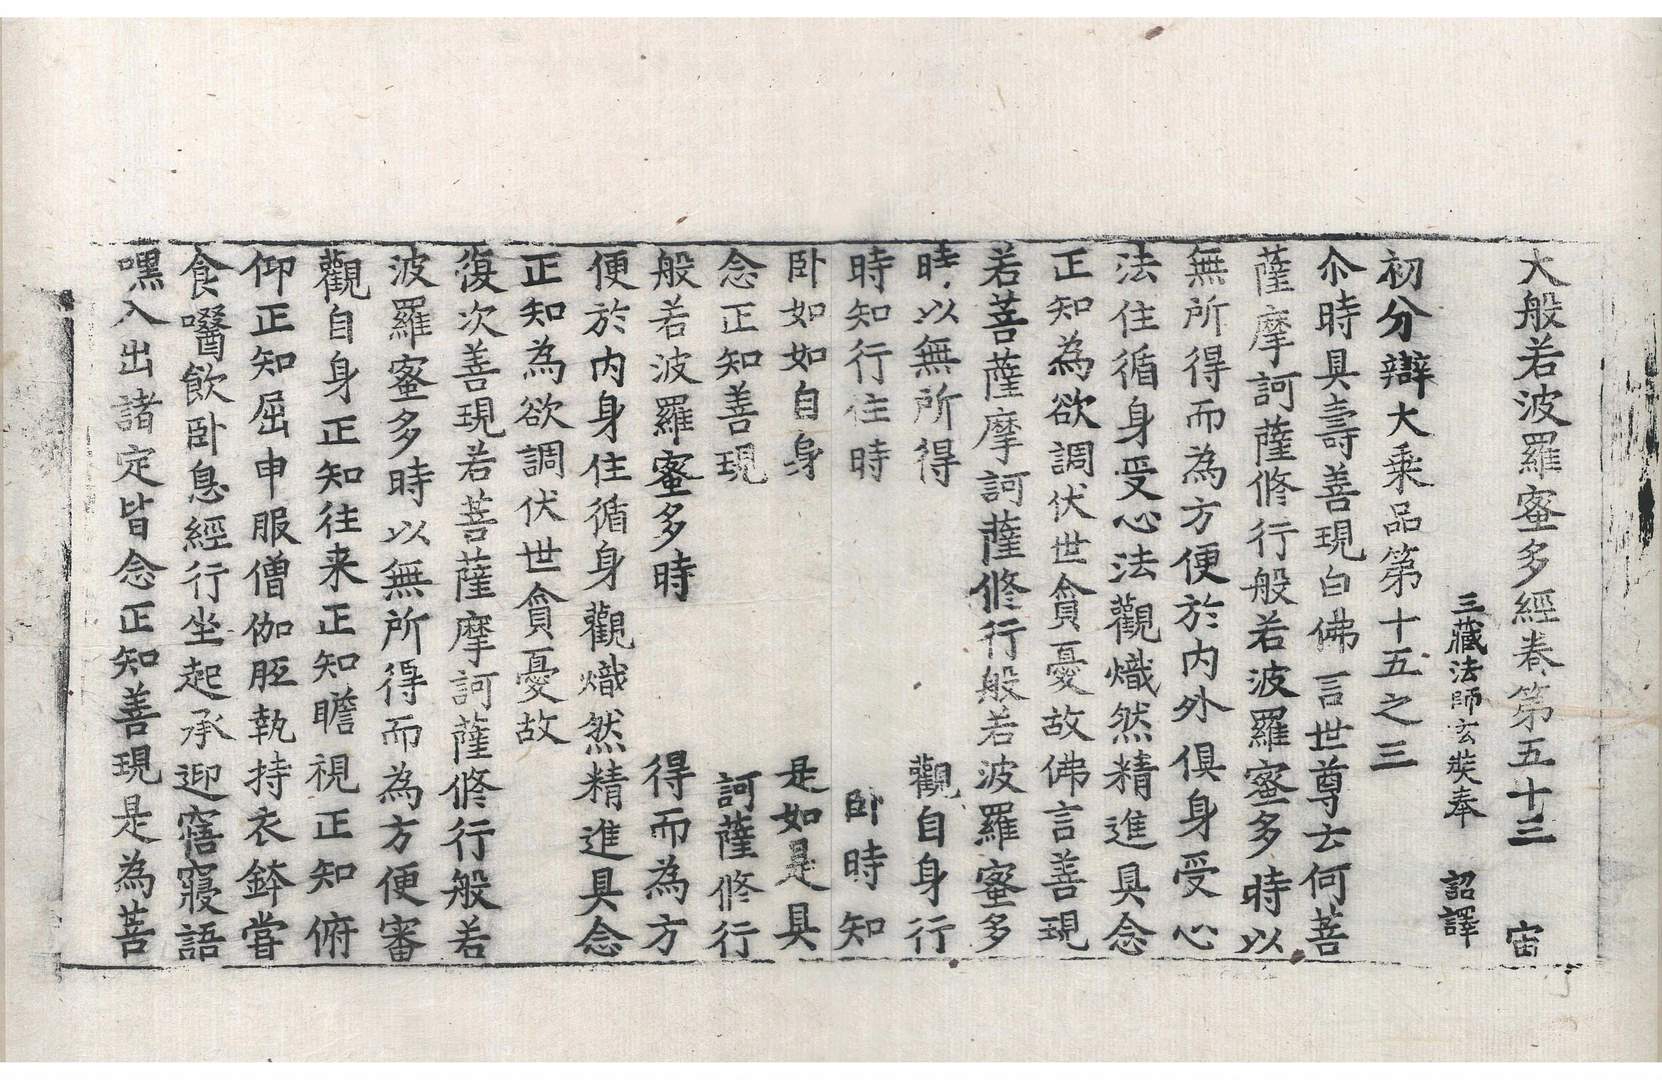 大般若波羅蜜多經卷第五十三 宙
三藏法師玄奘奉 詔譯
初分辯大乗品第十五之三
尒時具壽善現白佛言世尊云何菩
薩摩訶薩修行般若波羅蜜多時以
無所得而為方便於内外俱身受心
法住循身受心法觀熾然精進具念
正知為欲調伏世貪憂故佛言善現
若菩薩摩訶薩修行般若波羅蜜多
時以無所得 觀自身行
時知行住時 卧時知
卧如如自身 是如是具
念正知善現 訶薩修行
般若波羅蜜多時 得而為方
便於内身住循身觀熾然精進具念
正知為欲調伏世貪憂故
復次善現若菩薩摩訶薩修行般若
波羅蜜多時以無所得而為方便審
觀自身正知往来正知瞻視正知俯
仰正知屈申服僧伽胝執持衣鉢嘗
食噉飲卧息經行坐起承迎寤寐語
嘿入出諸定皆念正知善現是為菩